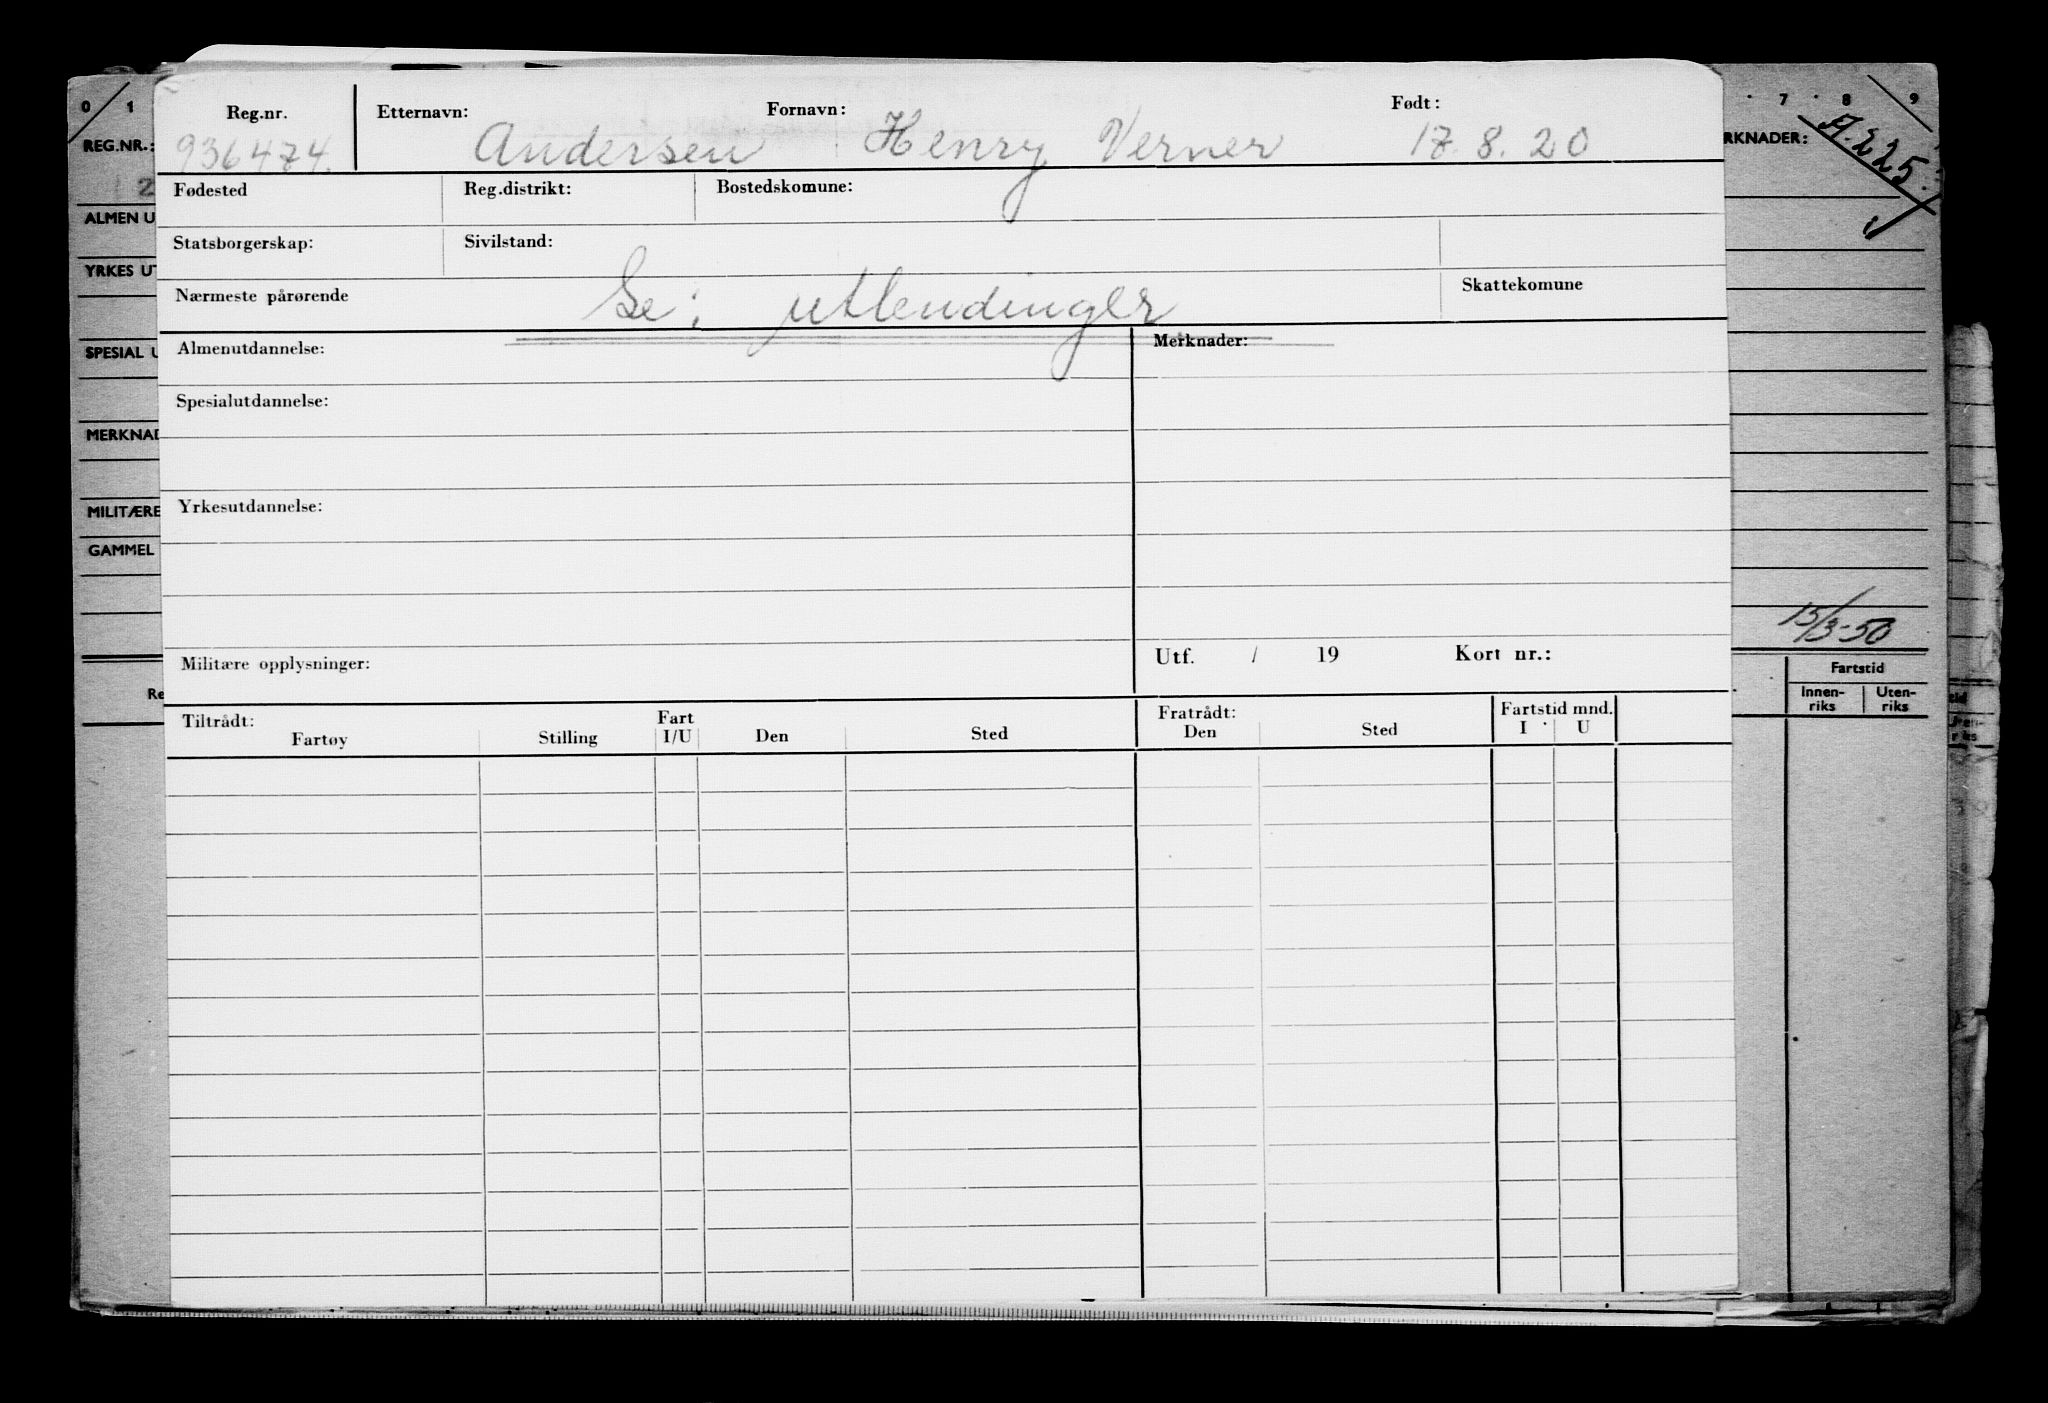 0 1 7 8 9
REG.NR.:
RKNADER: A.225.
Reg.nr. Etternavn: Fornavn: Født:
936474. Andersen Henry Verner 17.8.20
2
Fødested Reg.distrikt: Bostedskomune:
ALMEN U
Statsborgerskap: Sivilstand:
YRKES UT
Nærmeste pårørende Se: utlendinger Skattekomune
SPESIAL U
Almenutdannelse: Merknader:
Spesialutdannelse:
MERKNAD
Yrkesutdannelse:
MILITÆRE
GAMMEL
15/3-50
Militære opplysninger: Utf. / 19 Kort nr.:
Fartstid
Re
Innen- Uten-
riks riks
Tiltrådt: Fart Fratrådt: Fartstid mnd.
Fartøy Stilling I/U Den Sted Den Sted I U